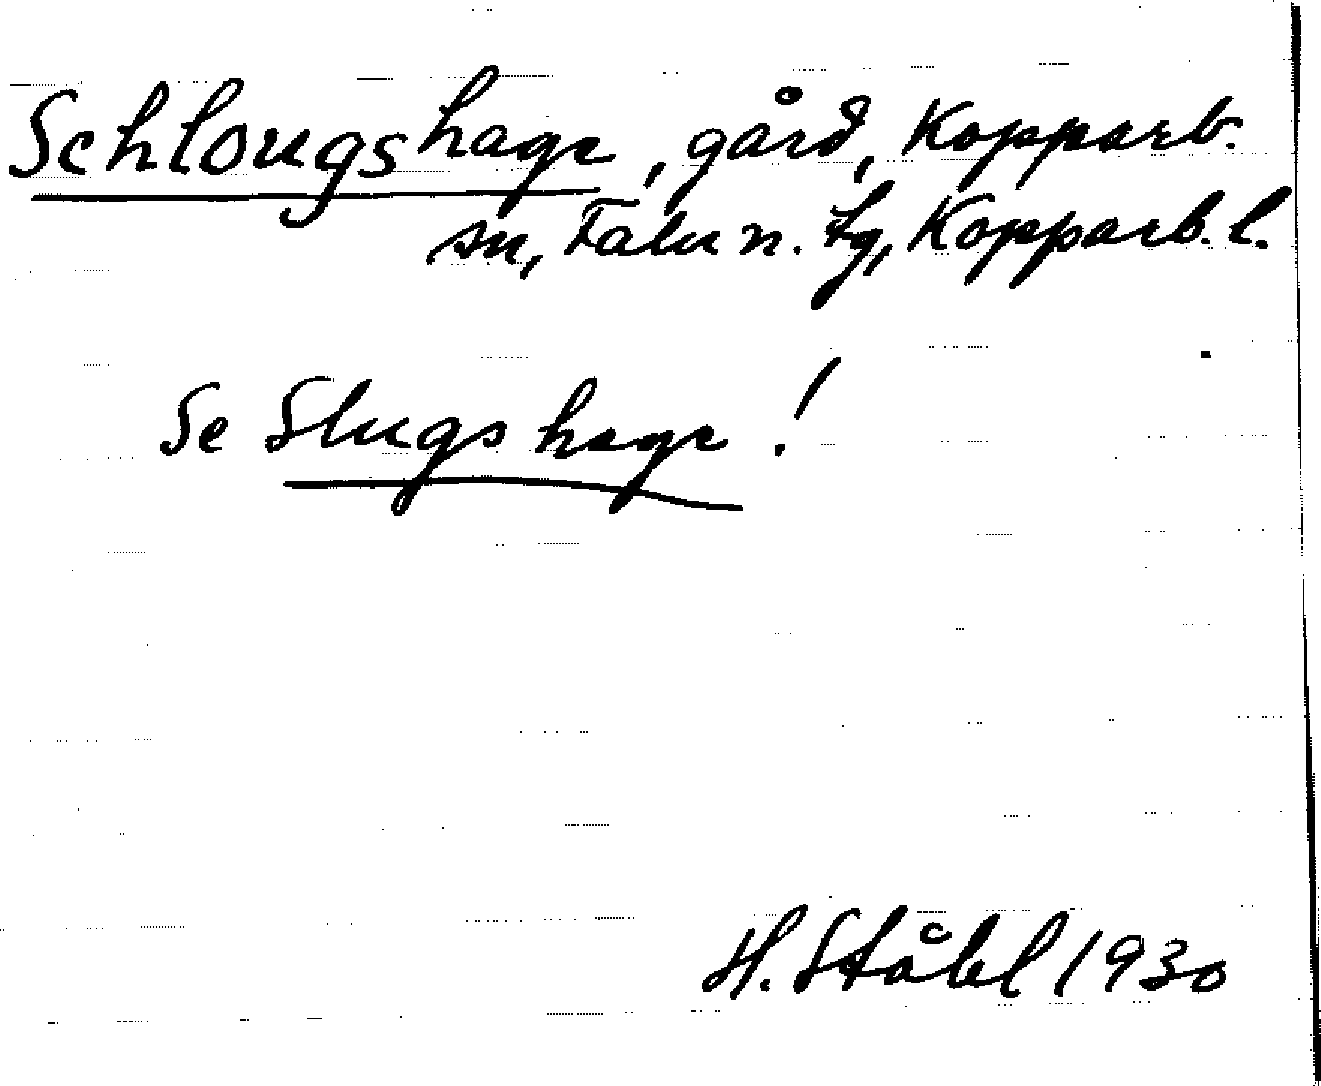 Schlougshage, gård, Kopparb.
sn, Falu n. tg, Kopparb. l.
Se Slugshage!
H. Ståhl 1930